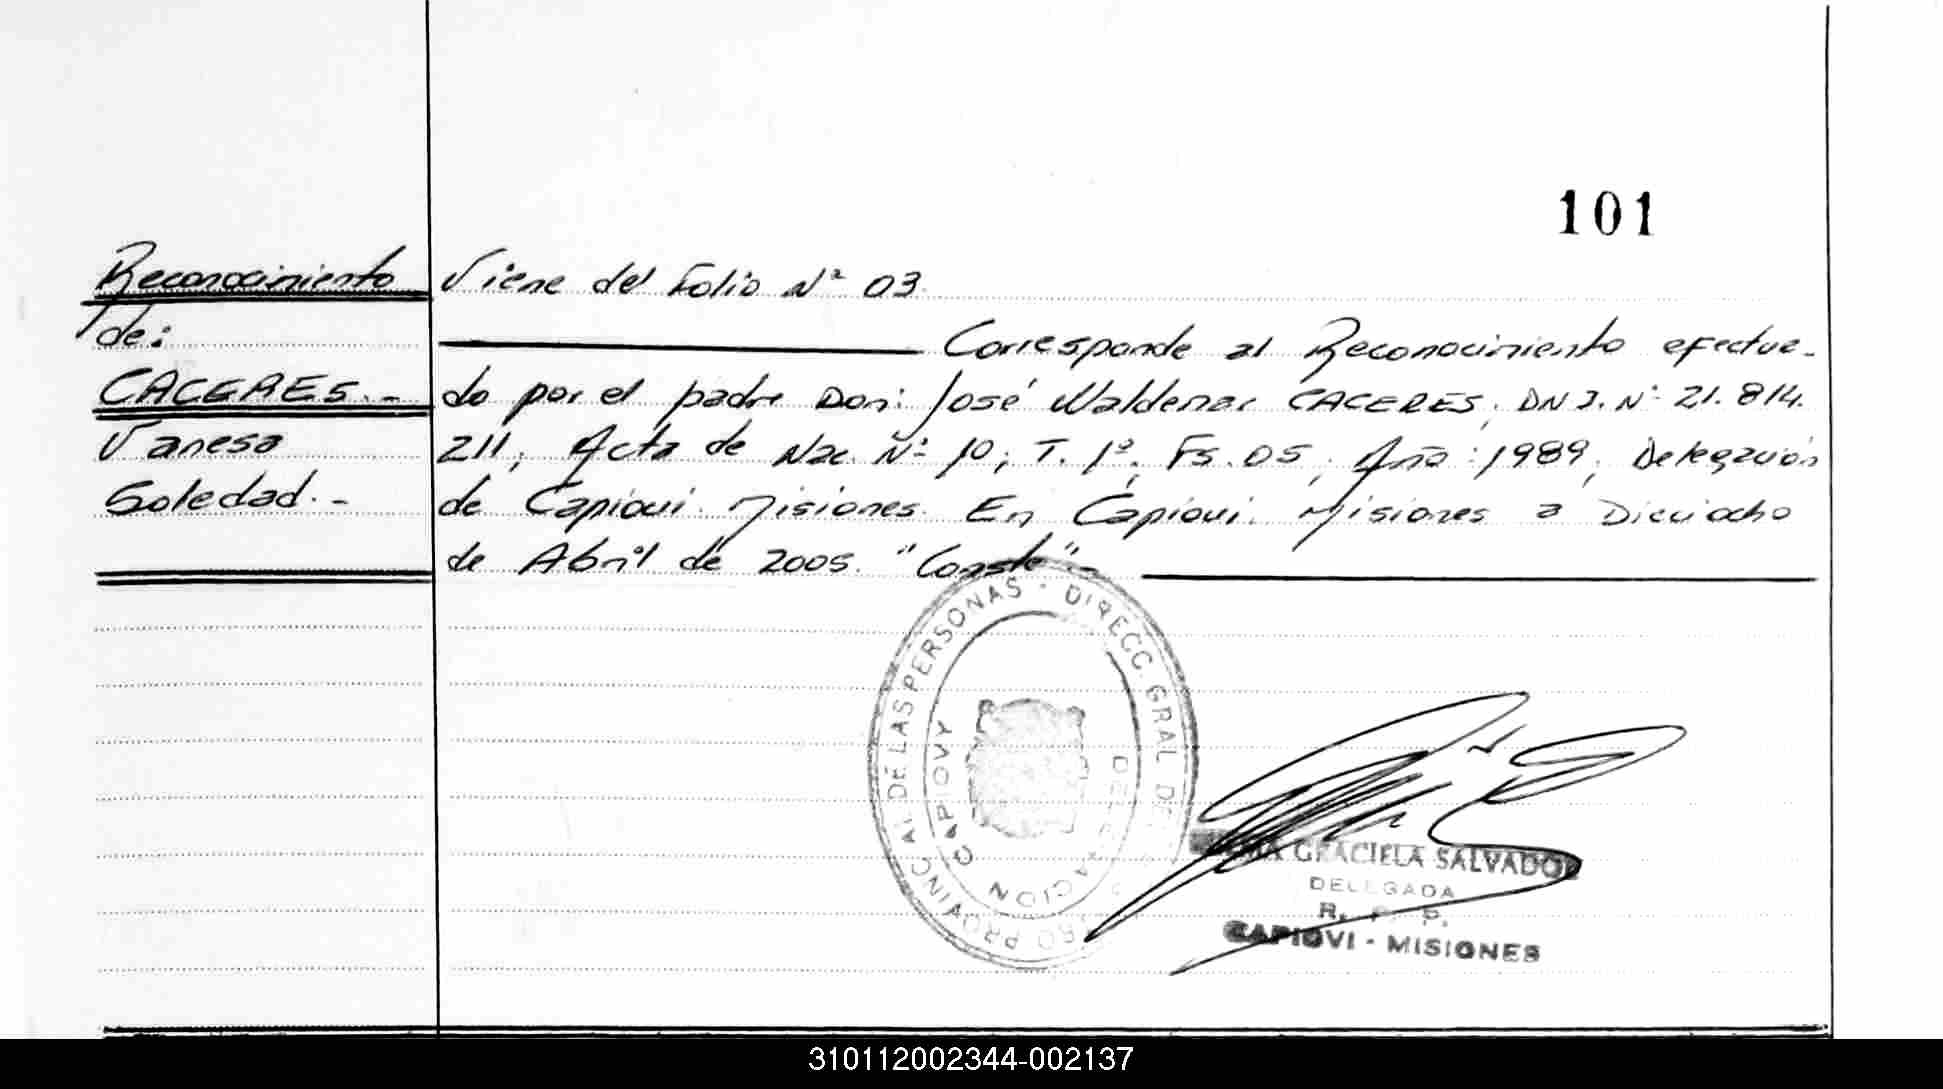 101
Reconocimiento
de:
CACERES.-
Vanesa
Soledad.-
Viene del Folio Nº 03.
Corresponde al Reconocimiento efectua-
do por el padre Don: José Waldemar CACERES, DNI. Nº 21.814.
211, Acta de Nac. Nº 10, T. 1º, Fs. 05, Año: 1989, Delegación
de Capiovi. Misiones. En Capiovi. Misiones a Dieciocho
de Abril de 2005. "Conste"-
DIRECC. GRAL DEL PROVINCIAL DE LAS PERSONAS
DELEGACION CAPIOVY
GRACIELA SALVADOR
DELEGADA
R. P. P.
CAPIOVI - MISIONES
310112002344-002137